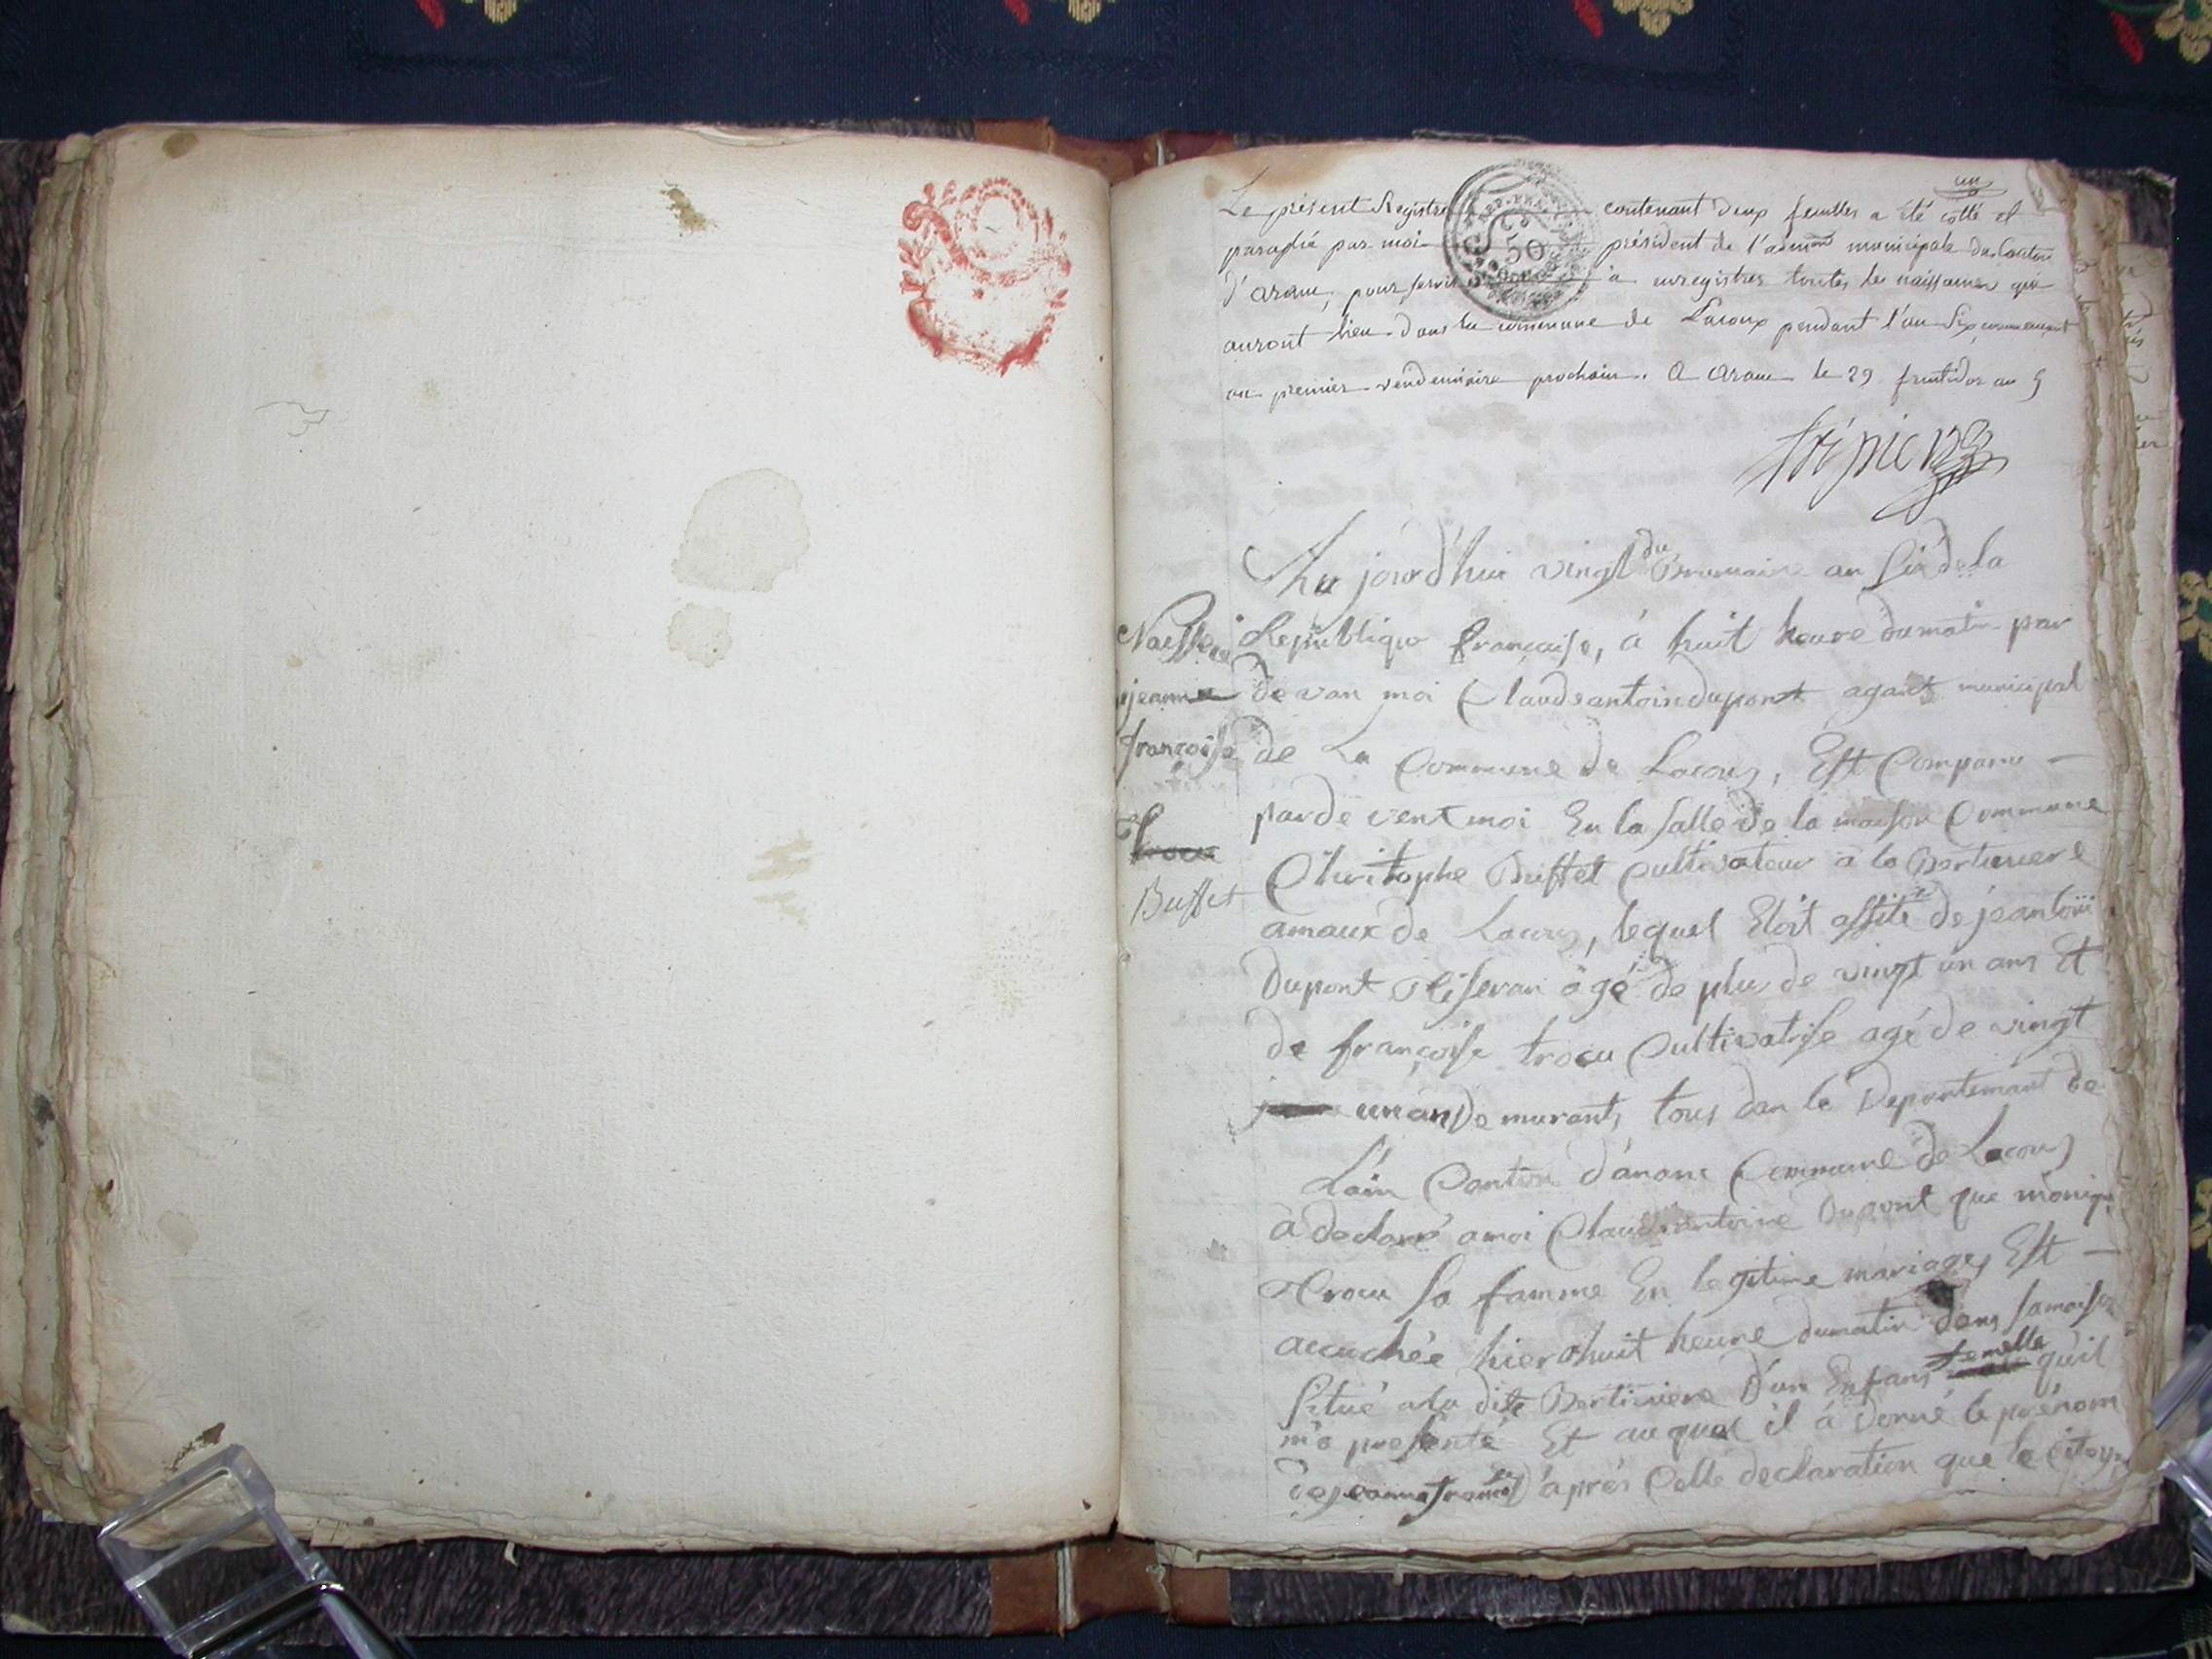 un
Le présent Registre contenant deux feuilles a été cotté et
paraphé par moi président de l'admon municipale du Canton
d'aranc, pour servir à enregistrer toutes les naissances qui
auront lieu dans la commune de Lacoux pendant l'an Six commencant
au premier vendemiaire prochain. A aranc le 29 fructidor an 5
REP. FRA.
50
trépier
Au jourd'hui vingt du Brumaire an Six de la
Republique française, à huit heure du matin par
devan moi Claude antoine dupont agant municipal
de La Commune de Lacoux, Est Comparu —
par de vent moi En la salle de la maison Commune
Chritophe Buffet Cultivateur a la Bertiniere
amaux de Lacoux, lequel Etoit assité de jean loüi
Dupont âgé de plus de vingt un ans Et
de françoise trocu Cultivatrise agé de vingt
un an Demurants tous dan le Departemant de
L'ain Canton d'aranc Commune de Lacoux
a declaré a moi Claude antoine Dupont que moniqu
trocu sa famme En legitime mariages Est —
accuchée hier a huit heure du matin dans sa maison
Situé a la dite Bertiniere D'un Enfans femelle qu'il
m'a presenté Et au quel il a donné le prénom
de jeanne françoise D'après Cette declaration que le citoyen
Naissance
jeanne
françoise
trocu
Buffet